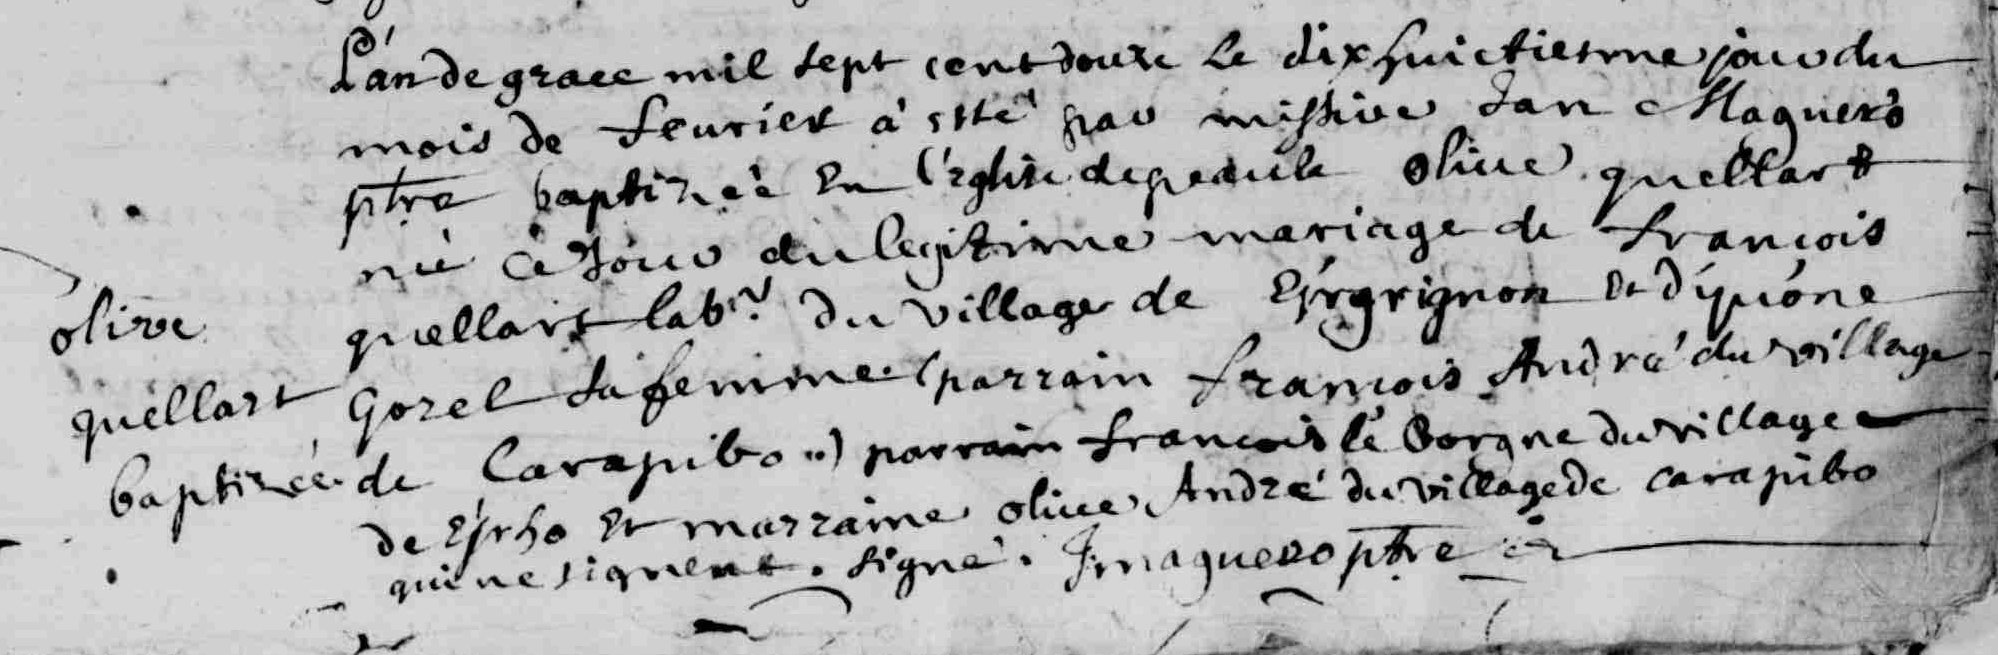 L'an de grace mil sept cent douze le dixhuictiesme jour du
mois de feurier à esté par missire Jan Maguero
ptre baptizéé En l'eglise de peaule oliue quellart
néé cé Jour du legitime mariage de francois
quellart labr. du village de Kergrignon Et d'yuóne
Gorel sa femme (parrain francois André du village
de Carapibo ..) parrain francois lé Borgne du village
de Kerho Et marraine oliue André du village de carapibo
qui ne signent . signé . J maguero ptre
olive
quellart
baptizéé